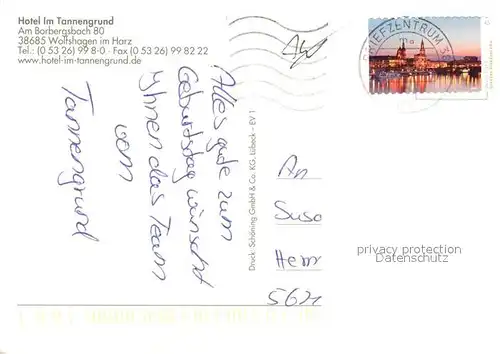 Hotel Im Tannengrund
Am Borbergsbach 80
38685 Wolfshagen im Harz
Tel.: (0 53 26) 99 8-0 · Fax (0 53 26) 99 82 22
www.hotel-im-tannengrund.de
Alles gute zum
Geburtstag wünscht
Ihnen das Team
vom
Tannengrund
Druck: Schöning GmbH & Co. KG, Lübeck - EV 1
BRIEFZENTRUM 3
An
Susa
Herm
562
privacy protection
Datenschutz